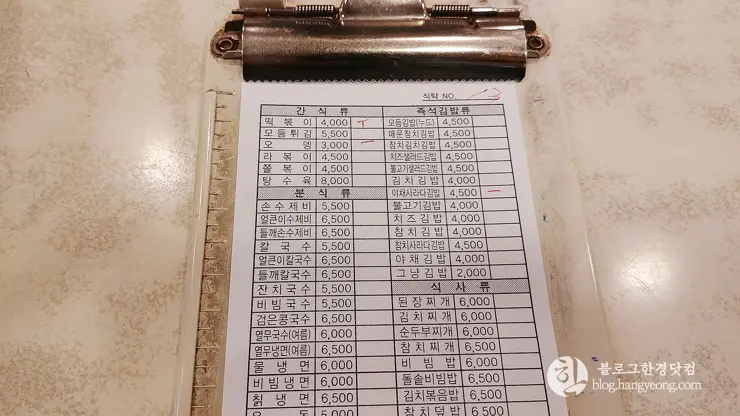 식탁 NO.
간 식 류
떡 볶 이 4,000
모 듬 튀 김 5,500
오 뎅 3,000
라 볶 이 4,500
쫄 볶 이 4,500
탕 수 육 8,000
분 식 류
손 수 제 비 5,500
얼큰이수제비 6,500
들깨손수제비 6,500
칼 국 수 5,500
얼큰이칼국수 6,500
들깨칼국수 6,500
잔 치 국 수 5,500
비 빔 국 수 5,500
검은콩국수 6,500
열무국수(여름) 6,000
열무냉면(여름) 6,500
물 냉 면 6,000
비 빔 냉 면 6,000
칡 냉 면 6,500
5,000
즉석김밥류
모듬김밥(누드) 4,500
매운참치김밥 4,500
참치김치김밥 4,500
치즈샐러드김밥 4,500
불고기샐러드김밥 4,500
김 치 김 밥 4,000
야채사라다김밥 4,500
불고기김밥 4,000
치 즈 김 밥 4,000
참 치 김 밥 4,000
참치사라다김밥 4,500
야 채 김 밥 4,000
그 냥 김 밥 2,000
식 사 류
된 장 찌 개 6,000
김 치 찌 개 6,000
순두부찌개 6,000
참 치 찌 개 6,500
비 빔 밥 6,000
돌솥비빔밥 6,500
김치볶음밥 6,500
참 치 덮 밥 6,500
한 블로그한경닷컴
blog.hangyeong.com